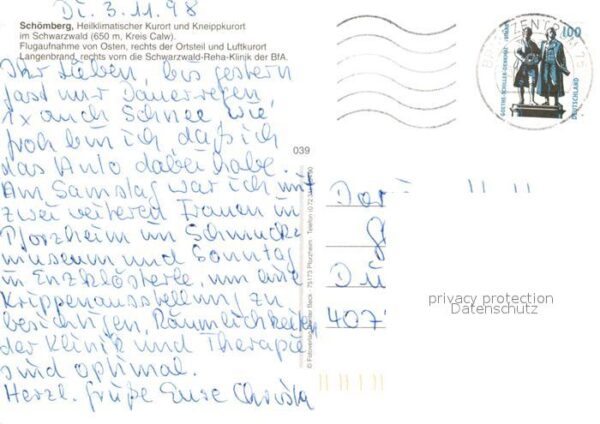 Di. 3.11.98
Schömberg, Heilklimatischer Kurort und Kneippkurort
im Schwarzwald (650 m, Kreis Calw).
Flugaufnahme von Osten, rechts der Ortsteil und Luftkurort
Langenbrand, rechts vorn die Schwarzwald-Reha-Klinik der BfA.
Ihr Lieben, bis gestern
fast nur Dauerregen,
1x auch Schnee wie
froh bin ich daß ich
das Auto dabei habe.
Am Samstag war ich mit
zwei weiteren Frauen in
Pforzheim im Schmuck-
museum und Sonntag
in Enzklösterle, um eine
Krippenausstellung zu
besichtigen, Räumlichkeiten
der Klinik und Therapie
sind optimal.
Herzl. Grüße Eure
039
75173 Pforzheim
100
GOETHE-SCHILLER-DENKMAL
DEUTSCHLAND
BRIEFZENTRUM 75
Dor
g
Du
407
privacy protection
Datenschutz